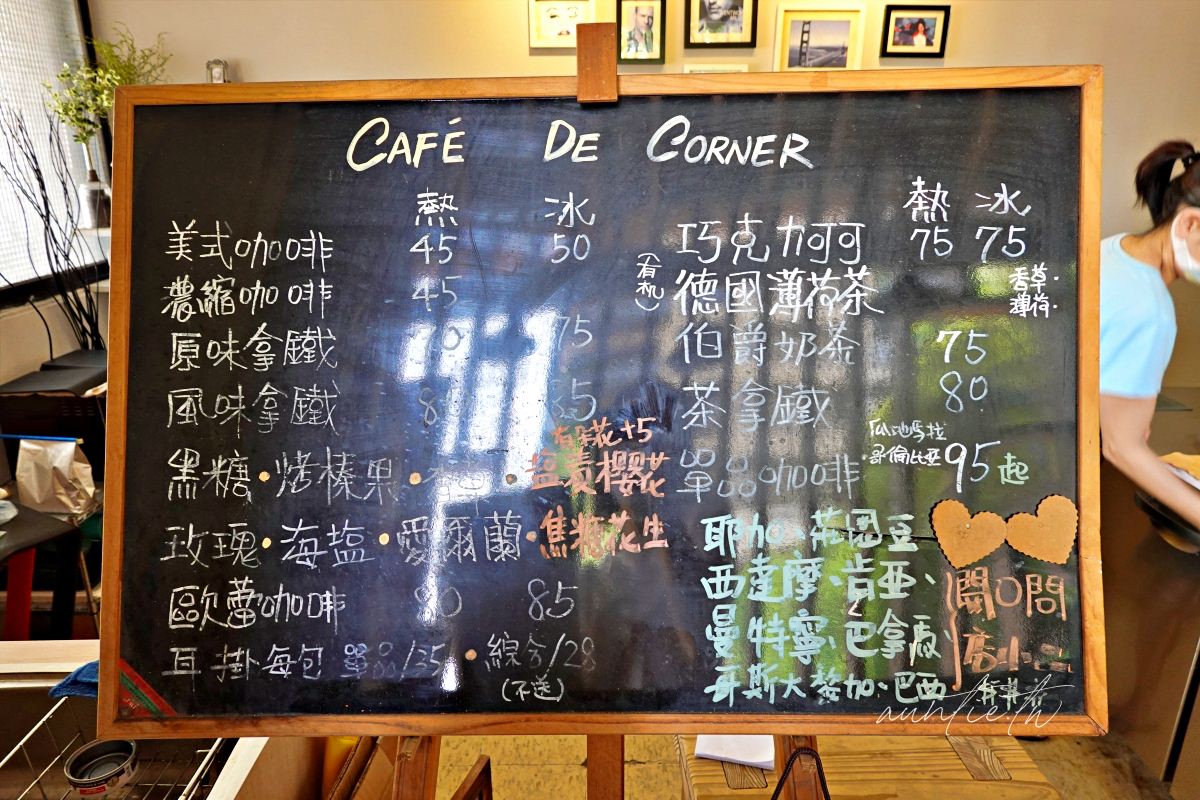 CAFÉ DE CORNER
熱 冰
美式咖啡 45 50
濃縮咖啡 45
原味拿鐵 75
風味拿鐵
有鹽花+5
黑糖・烤榛果・ ・塩漬櫻花
玫瑰・海塩・愛爾蘭・焦糖花生
歐蕾咖啡 80 85
耳掛每包 單品/35・綜合/28
(不送)
熱 冰
巧克力可可 75 75
(有机)
德國薄荷茶
香草・
薄荷・
伯爵奶茶 75
茶拿鐵 80
瓜地馬拉
哥倫比亞
單品咖啡 95起
耶加、莊園豆
西達摩、肯亞、
曼特寧、巴拿馬、
哥斯大黎加、巴西
開口問
店小二
auntie.tw